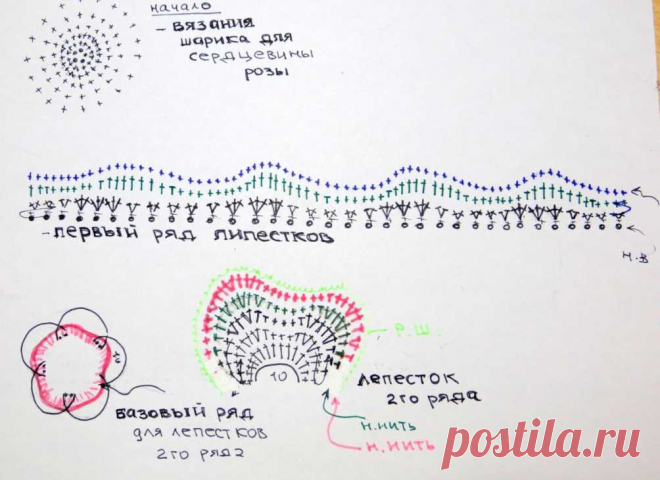 начало
- вязания
шарика для
сердцевины
розы
-первый ряд липестков
н.в
10
базовый ряд
для лепестков
2го ряда
10
Р.Ш.
лепесток
2го ряда
н.нить
н.нить
postila.ru